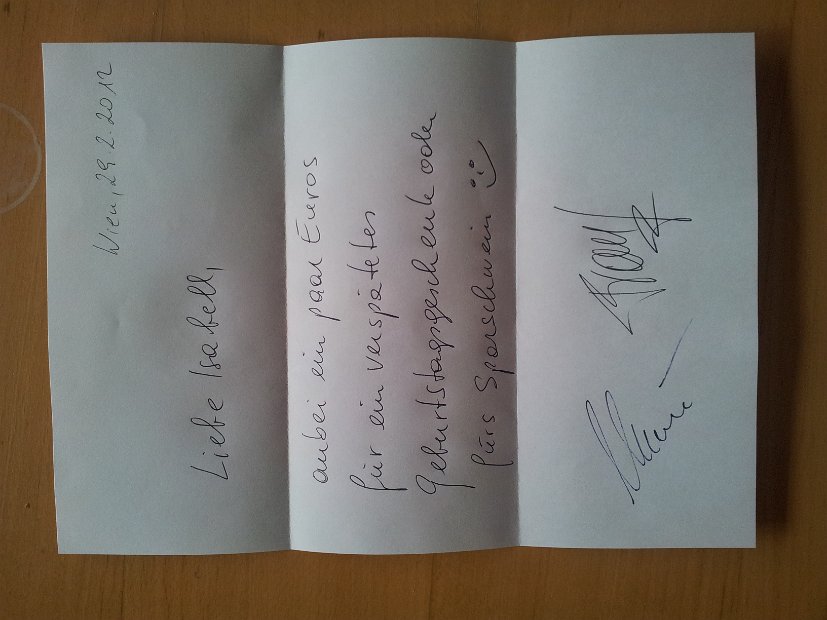 Wien, 29.2.2012
Liebe Isabell,
anbei ein paar Euros
für ein verspätetes
Geburtstagsgeschenk oder
fürs Sparschwein :-)